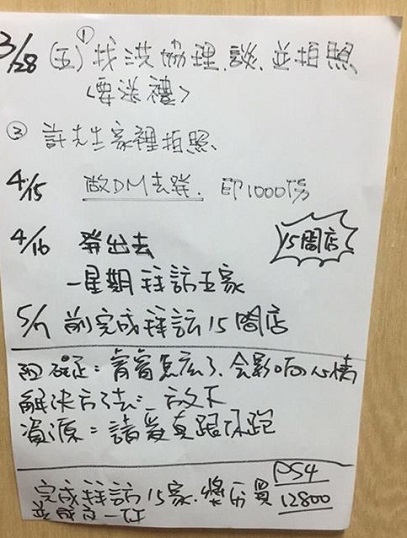 3/28 (五) ① 找洪協理談, 並拍照
<要送禮>
② 許先生家裡拍照
4/15 做DM去發. 印1000份
4/16 發出去
15間店
一星期拜訪五家
5/1 前完成拜訪15間店
會影响心情
解決方法: 放下
資源:請愛真跟
完成拜訪15家.獎勵買
PS4
12800